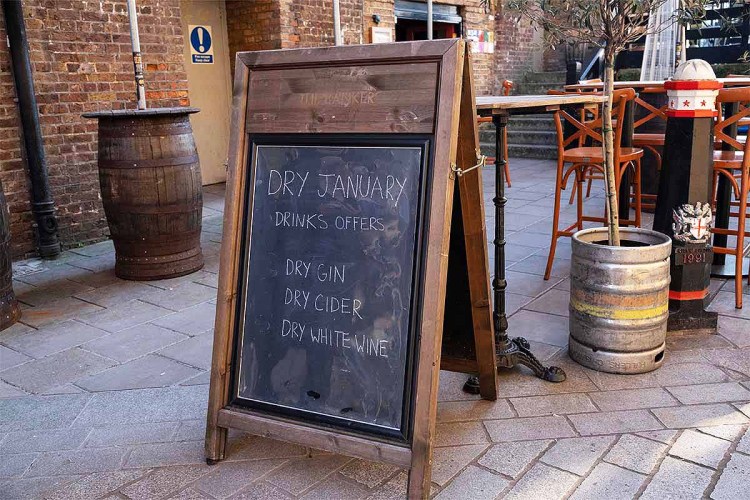 THE BANKER
DRY JANUARY
DRINKS OFFERS
DRY GIN
DRY CIDER
DRY WHITE WINE
1991